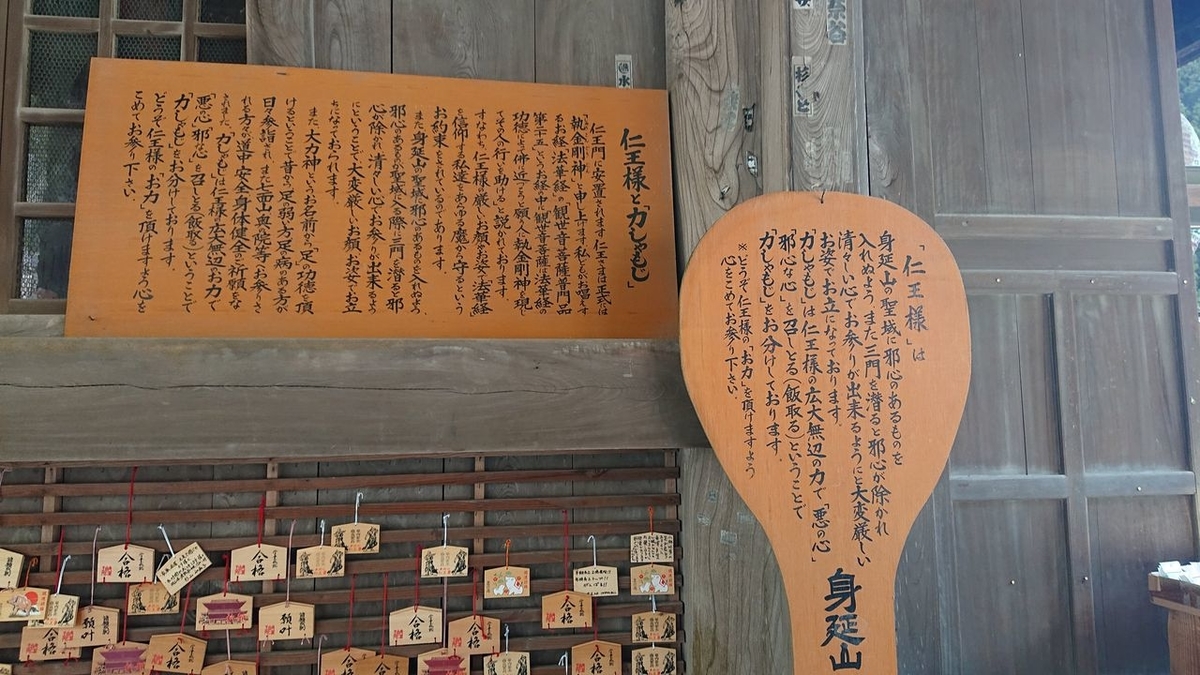 仁王様と「力しゃもじ」
仁王門に安置されます仁王さまは正式は
執金剛神と申し上げます 私どもがお唱えす
るお経 法華経の「観世音菩薩普門品
第二十五」というお経の中で観世音菩薩は法華経の
功徳によって佛に近づこうと願う人に執金剛神を現し
てその人の行を助けると説かれております
すなわち 仁王様の厳しいお顔とお姿は法華経
を信仰する私達をあらゆる魔から守るという
お約束をされているのであります。
また 身延山の聖域に邪心のあるものを入れぬよう
邪心のあるものが聖域に入る際に三門を潜ると邪
心が除かれ清々しい心でお参りが出来るよう
にということで大変厳しいお顔とお姿でお立
ちになっておられます。
また「大力神」というお名前から「足の功徳を頂
けるということで昔から足弱の方足の病のある方が
日々参詣され、また七面山奥の院等お参りさ
れる方々が道中安全身体健全の祈願をな
されました。「力しゃもじ」は仁王様の広大無辺のお力で
「悪の心」「邪な心」を召しとる(飯取る)ということで
「力しゃもじ」をお分けしております。
どうぞ仁王様の「お力」を頂けますよう心を
こめてお参り下さい。
「仁王様」は
身延山の聖域に邪心のあるものを
入れぬよう また三門を潜ると邪心が除かれ
清々しい心でお参りが出来るようにと大変厳しい
お姿でお立になっております。
「力しゃもじ」は仁王様の広大無辺の力で「悪の心」
「邪な心」を召しとる(飯取る)ということで
「力しゃもじ」をお分けしております。
※どうぞ仁王様の「お力」を頂けますよう
心をこめてお参り下さい。
身延山
水
谷
合格
合格
合格
願叶
願叶
合格
合格
合格
合格
合格
合格
合格
合格